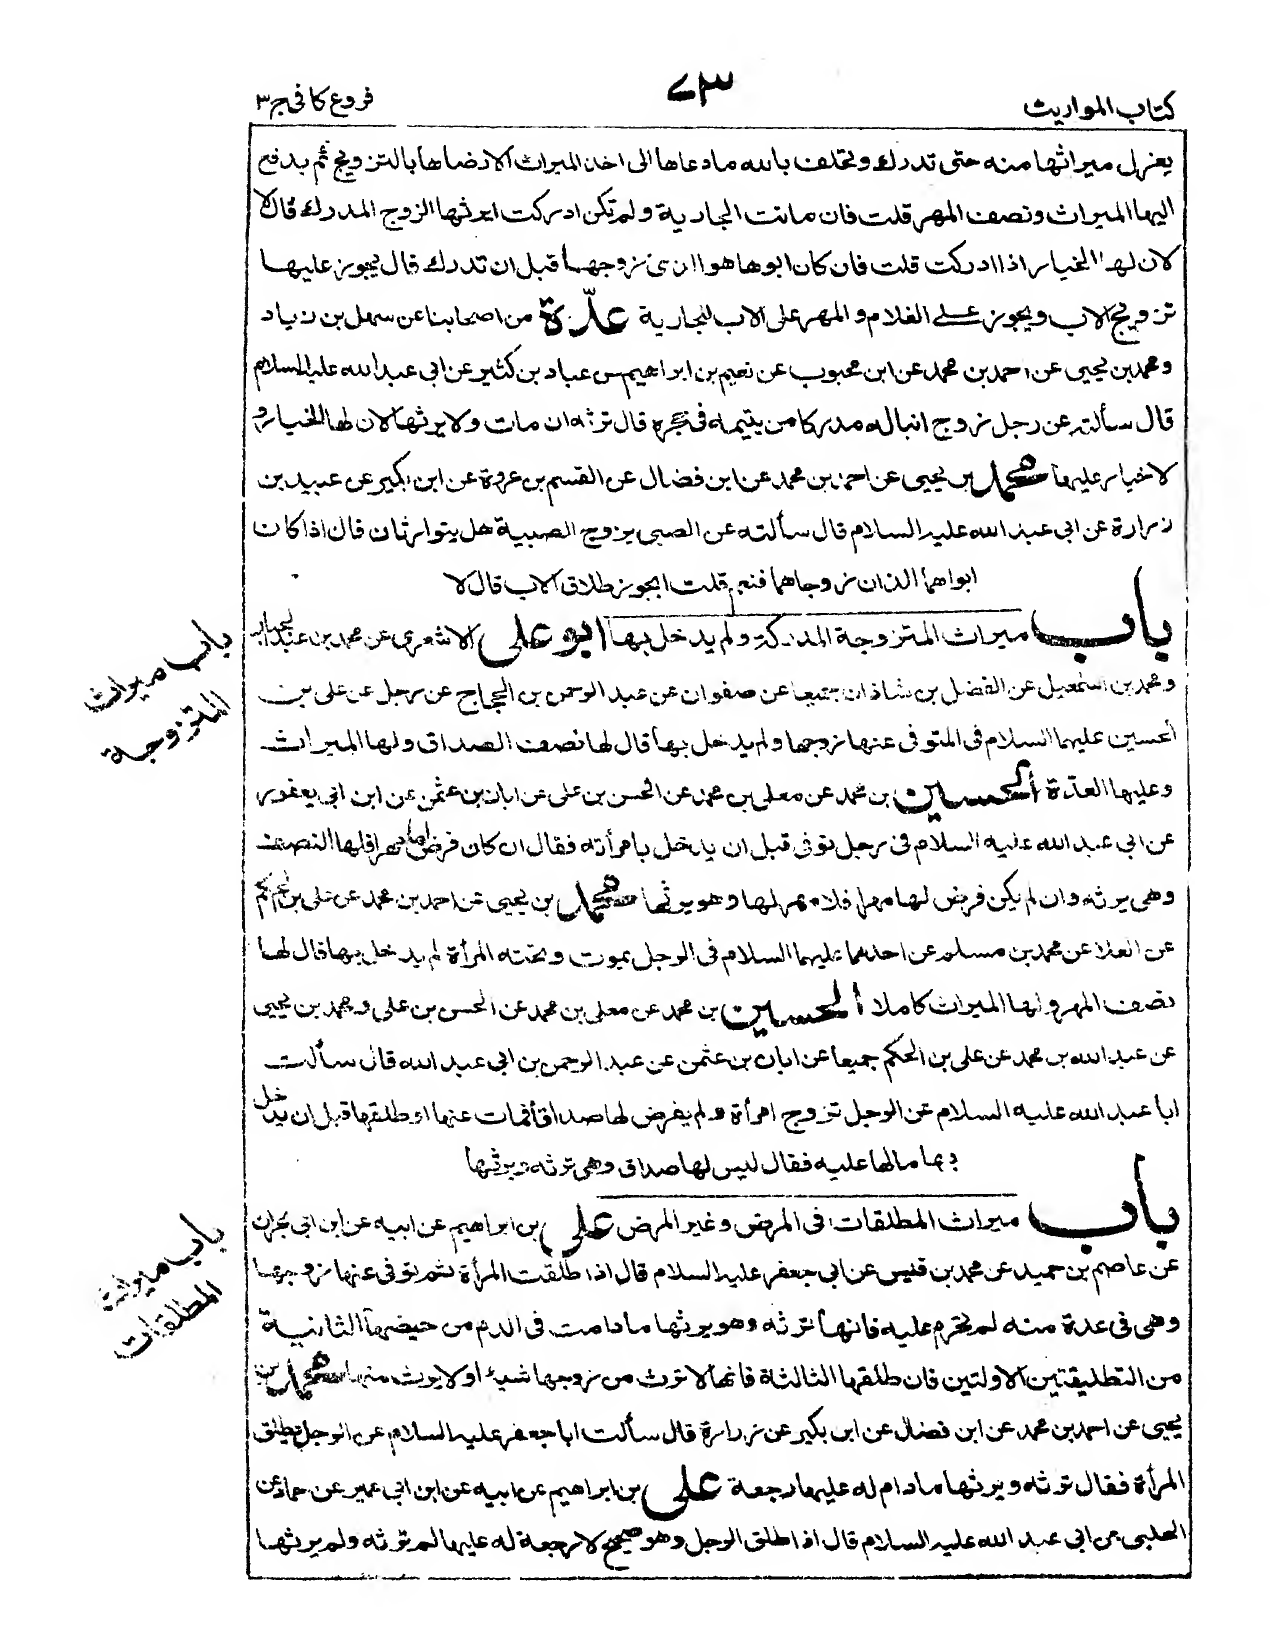 كتاب المواريث
٧٣
فروع كافى ج٣
يعزل ميراثها منه حتى تدرك وتحلف بالله ما دعاها الى اخذ الميراث الا رضاها بالتزويج ثم يدفع
اليها الميراث ونصف المهر قلت فان ماتت الجارية ولم تكن ادركت ايرثها الزوج المدرك قال لا
لان لها الخيار اذا ادركت قلت فان كان ابوها هو الذى زوجها قبل ان تدرك قال يجوز عليها
تزويج الاب ويجوز على الغلام والمهر على الاب للجارية عدّة من اصحابنا عن سهل بن زياد
ومحمد بن يحيى عن احمد بن محمد عن ابن محبوب عن نعيم بن ابراهيم عن عباد بن كثير عن ابى عبد الله عليه السلام
قال سألته عن رجل زوج ابنا له مدركا من يتيمة فى حجره قال ترثه ان مات ولا يرثها لان لها الخيار و
لا خيار عليها محمد بن يحيى عن احمد بن محمد عن ابن فضال عن القسم بن عروة عن ابن بكير عن عبيد بن
زرارة عن ابى عبد الله عليه السلام قال سألته عن الصبى يزوج الصبية هل يتوارثان قال اذا كان
ابواهما اللذان زوجاهما فنعم قلت ايجوز طلاق الاب قال لا
باب ميراث المتزوجة المدركة ولم يدخل بها ابو على الاشعرى عن محمد بن عبد الجبار
ومحمد بن اسمعيل عن الفضل بن شاذان جميعا عن صفوان عن عبد الرحمن بن الحجاج عن رجل عن على بن
الحسين عليهما السلام فى المتوفى عنها زوجها ولم يدخل بها قال لها نصف الصداق ولها الميراث
وعليها العدة الحسين بن محمد عن معلى بن محمد عن الحسن بن على عن ابان بن عثمن عن ابن ابى يعفور
عن ابى عبد الله عليه السلام فى رجل توفى قبل ان يدخل بامرأته فقال ان كان فرض لها مهرا فلها النصف
وهى يرثه وان لم يكن فرض لها مهرا فلا مهر لها وهو يرثها محمد بن يحيى عن احمد بن محمد عن على بن الحكم
عن العلا عن محمد بن مسلم عن احدهما عليهما السلام فى الرجل يموت وتحته المرأة لم يدخل بها قال لها
نصف المهر ولها الميراث كاملا الحسين بن محمد عن معلى بن محمد عن الحسن بن على ومحمد بن يحيى
عن عبد الله بن محمد عن على بن الحكم جميعا عن ابان بن عثمن عن عبد الرحمن بن ابى عبد الله قال سألت
ابا عبد الله عليه السلام عن الرجل تزوج امرأة ولم يفرض لها صداقا فمات عنها او طلقها قبل ان يدخل
بها مالها عليه فقال ليس لها صداق وهى ترثه ويرثها
باب ميراث المطلقات فى المرض وغير المرض على بن ابراهيم عن ابيه عن ابن ابى نجران
عن عاصم بن حميد عن محمد بن قيس عن ابى جعفر عليه السلام قال اذا طلقت المرأة ثم توفى عنها زوجها
وهى فى عدة منه لم تحرم عليه فانها ترثه وهو يرثها ما دامت فى الدم من حيضها الثانية
من التطليقتين الاولتين فان طلقها الثالثة فانها لا ترث من زوجها شيئا ولا يرث منها محمد بن
يحيى عن احمد بن محمد عن ابن فضال عن ابن بكير عن زرارة قال سألت ابا جعفر عليه السلام عن الرجل يطلق
المرأة فقال ترثه ويرثها ما دام له عليها رجعة على بن ابراهيم عن ابيه عن ابن ابى عمير عن حماد عن
الحلبى عن ابى عبد الله عليه السلام قال اذا طلق الرجل وهو صحيح لا رجعة له عليها لم ترثه ولم يرثها
باب ميراث
المتزوجة
باب ميراث
المطلقات